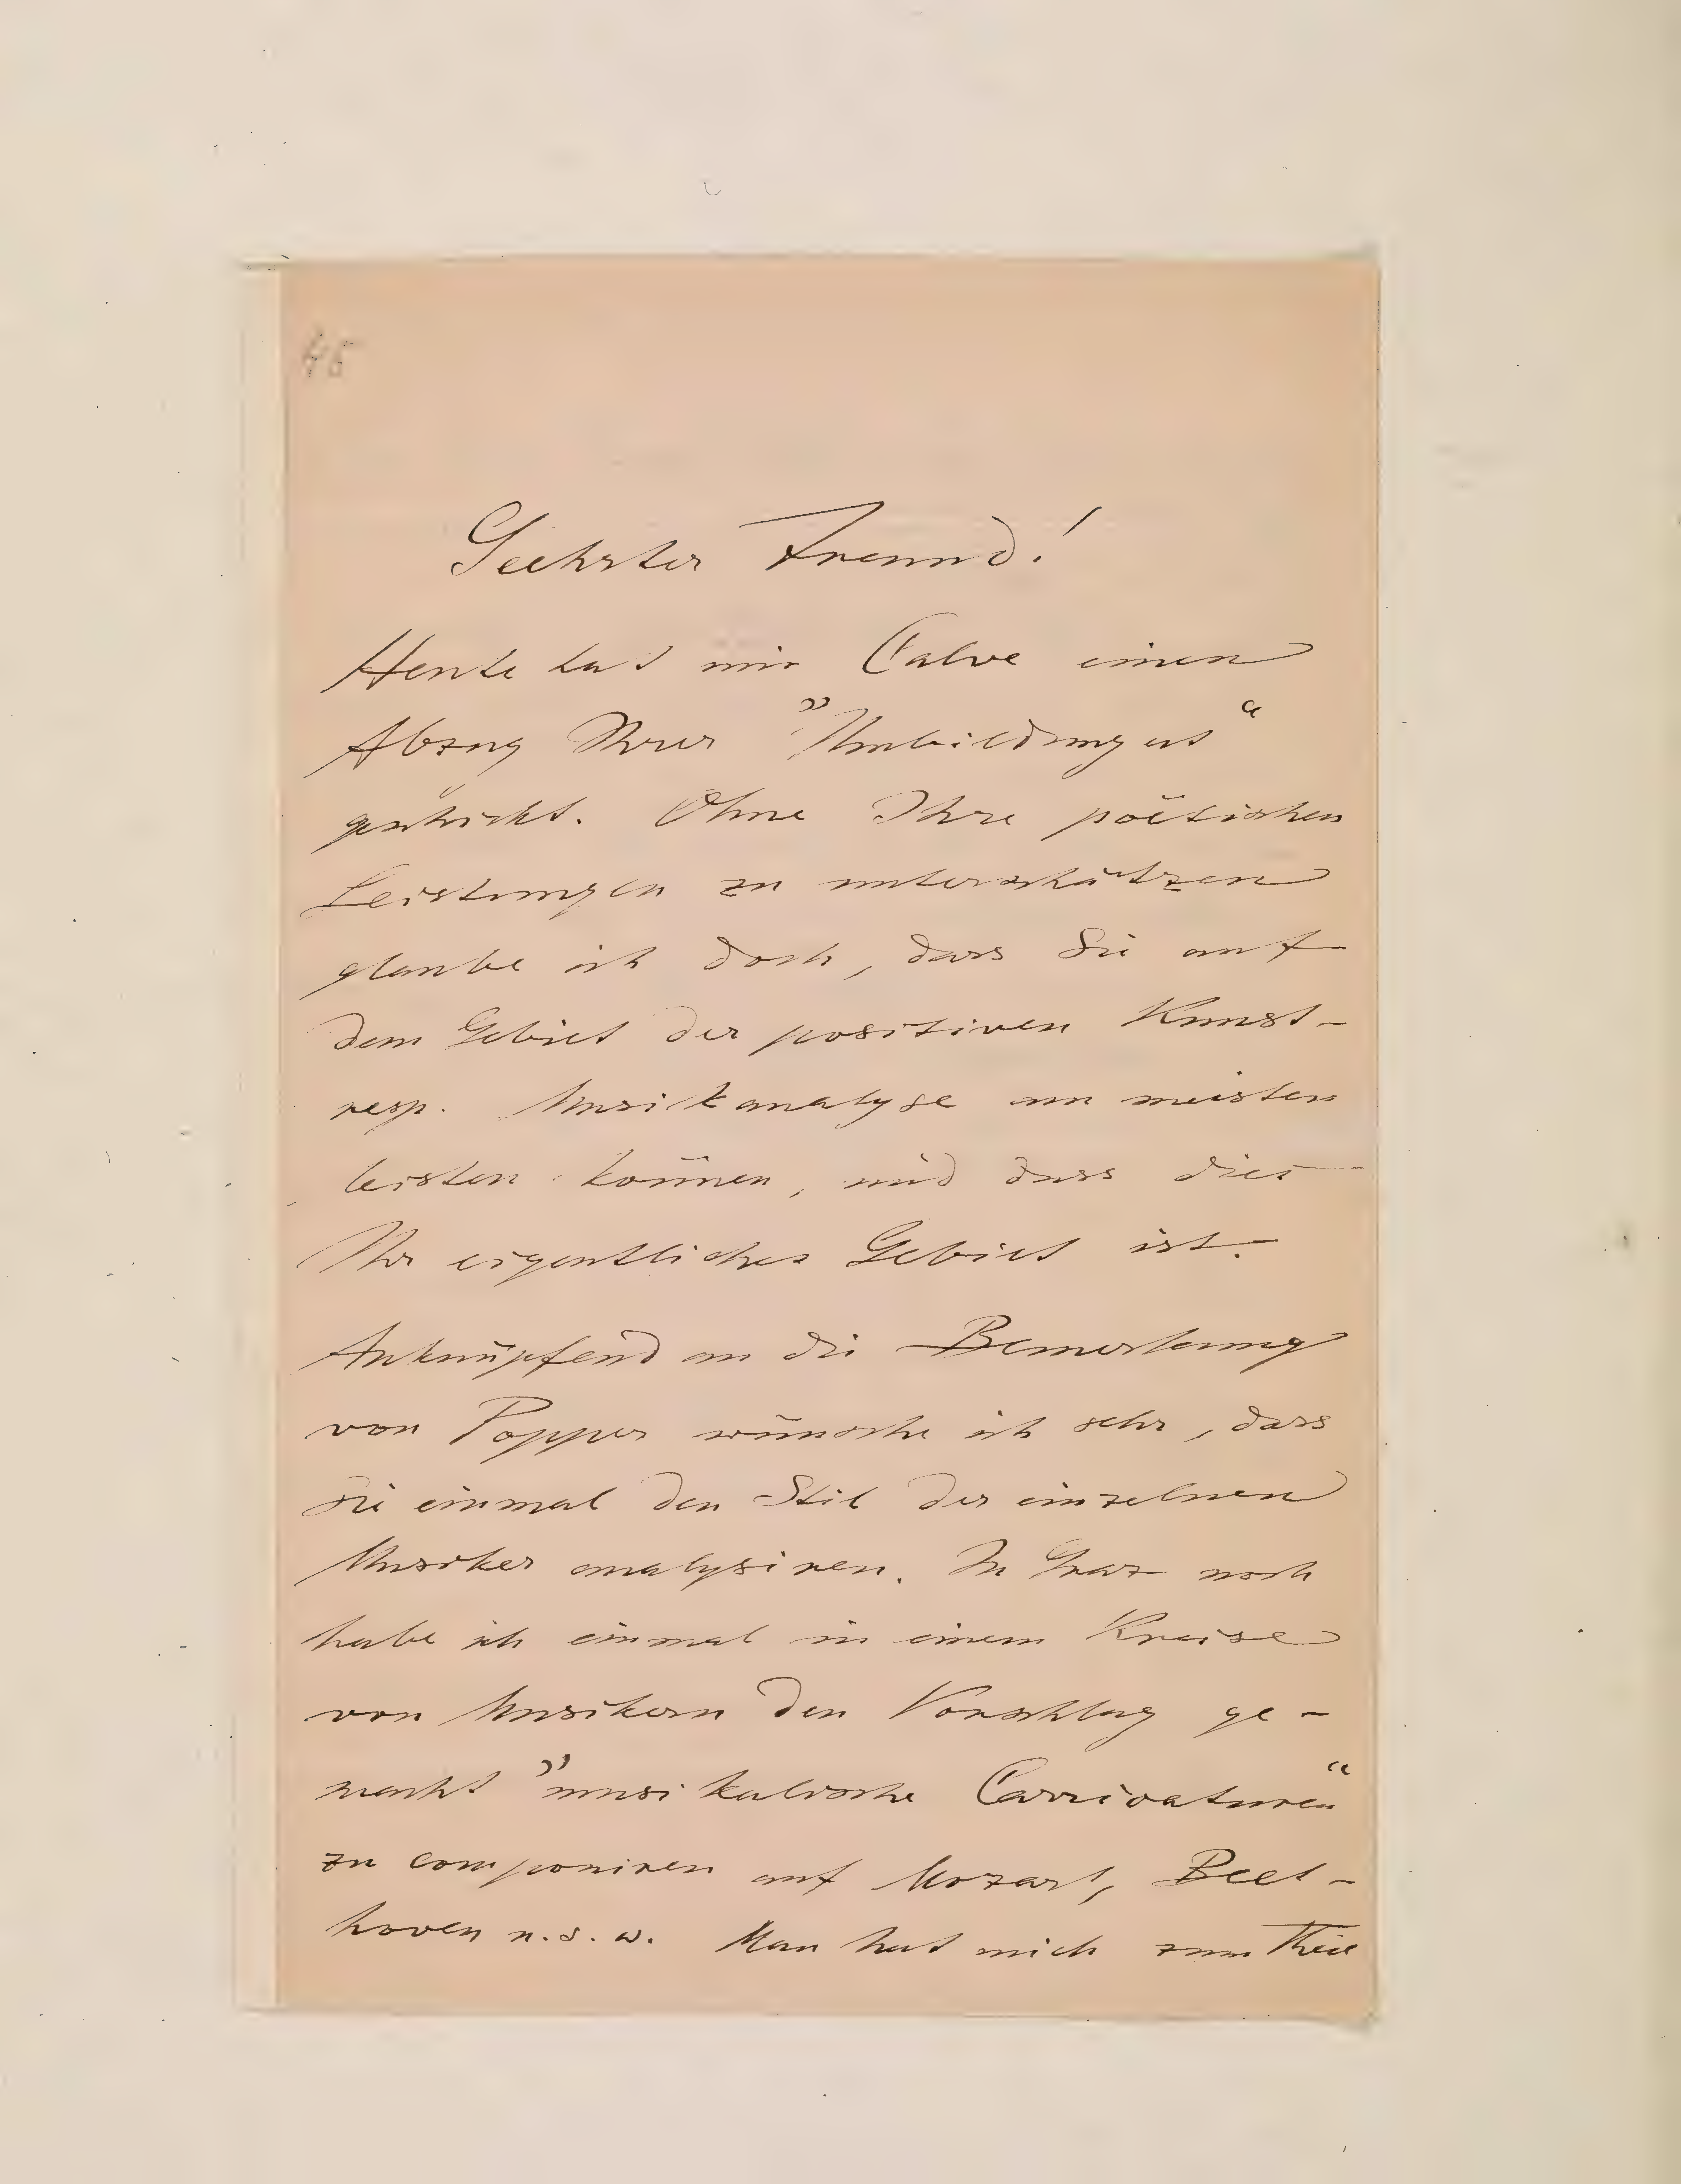 45
Geehrter Freund!
Heute hat mir Calve einen
Abzug Ihrer „Umbildungen“
geschickt. Ohne Ihre poëtischen
Leistungen zu unterschätzen
glaube ich doch, dass Sie auf
dem Gebiet der positiven Kunst-
resp. Musikanalyse am meisten
leisten können, und dass dies
Ihr eigentliches Gebiet ist.
Anknüpfend an die Bemerkung
von Popper wünsche ich sehr, dass
Sie einmal den Stil der einzelnen
Musiker analysiren. In Graz noch
habe ich einmal in einem Kreise
von Musikern den Vorschlag ge-
macht „musikalische Carricaturen“
zu componiren auf Mozart, Beet-
hoven u.s.w. Man hat mich zum Theil